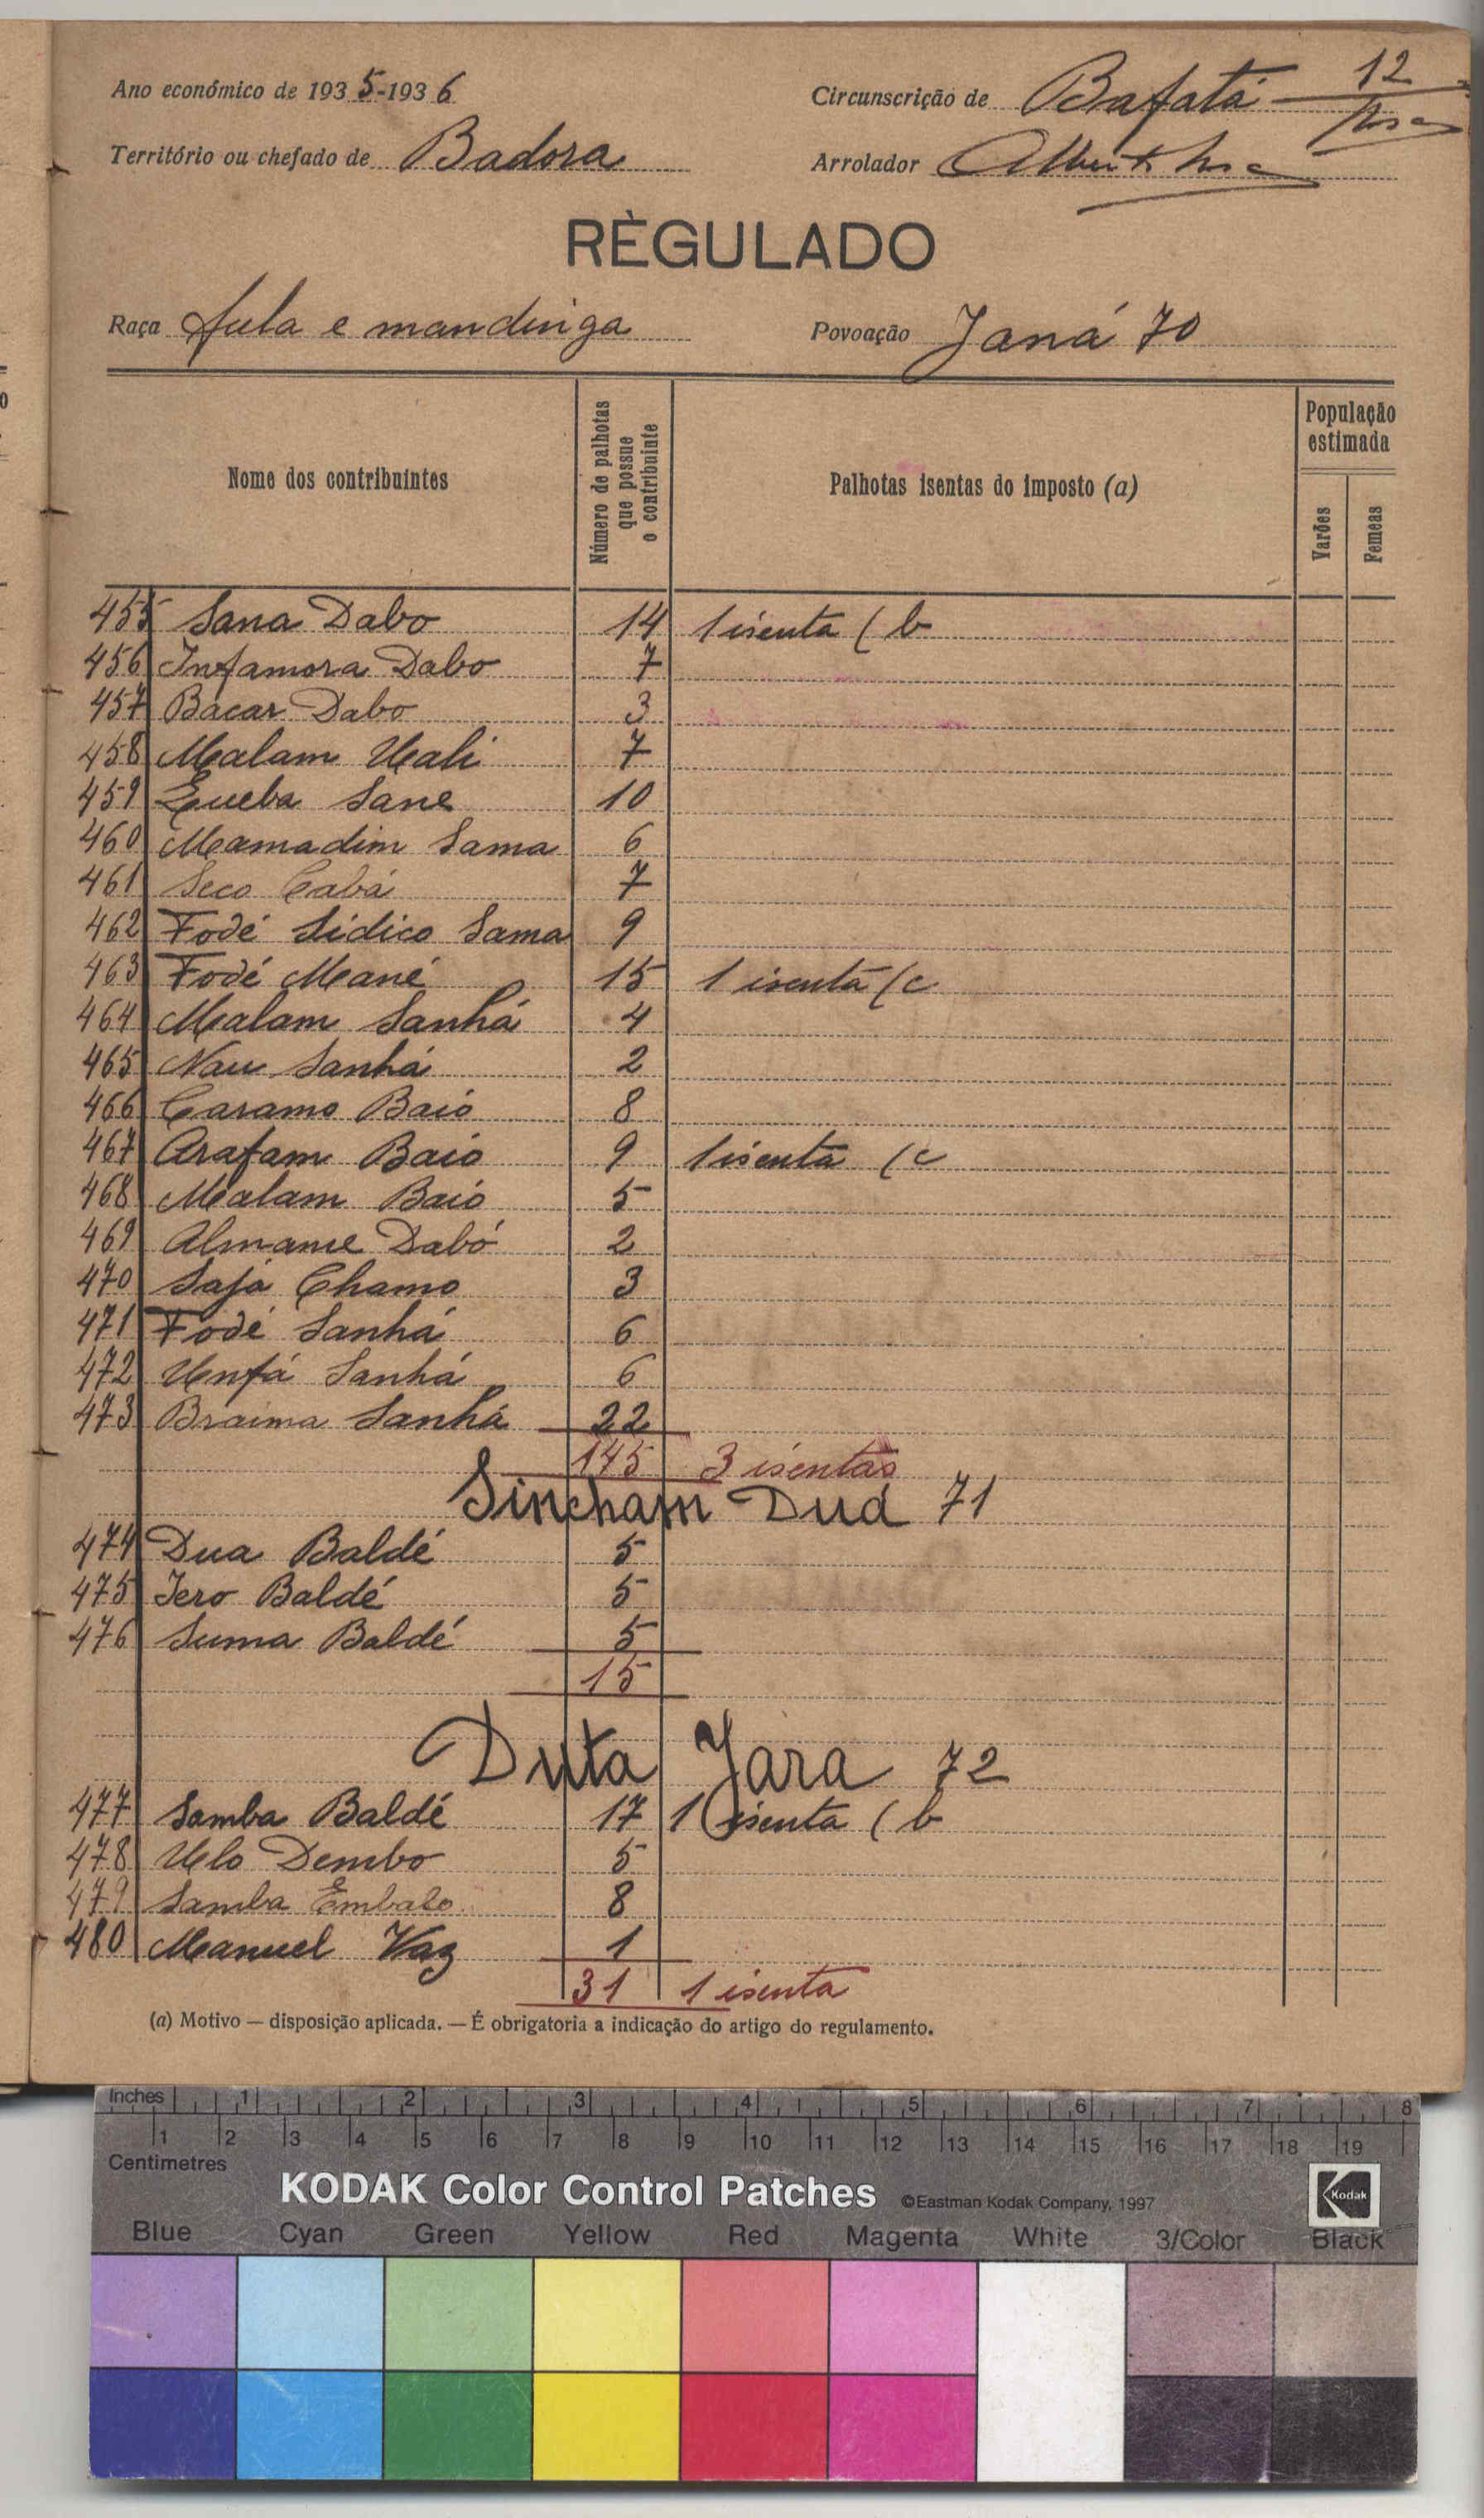 Ano económico de 1935-1936
Circunscrição de Bafatá 12
Território ou chefado de Badora
Arrolador
RÈGULADO
Raça fula e mandinga
Povoação Janá 70
Nome dos contribuintes
Número de palhotas que possue o contribuinte
Palhotas isentas do imposto (a)
População estimada
Varões
Femeas
455 Sana Dabo 14 1 isenta (b
456 Infamora Dabo 7
457 Bacar Dabo 3
458 Malam Uali 7
459 Queba Sane 10
460 Mamadim Sama 6
461 Seco Cabá 7
462 Fodé Sidico Sama 9
463 Fodé Mané 15 1 isenta (c
464 Malam Sanhá 4
465 Nau Sanhá 2
466 Caramo Baió 8
467 Arafam Baió 9 1 isenta (c
468 Malam Baió 5
469 Almame Dabó 2
470 Sajá Chamo 3
471 Fodé Sanhá 6
472 Unfá Sanhá 6
473 Braima Sanhá 22
145 3 isentas
Sincham Duá 71
474 Dua Baldé 5
475 Iero Baldé 5
476 Suma Baldé 5
15
Duta Jara 72
477 Samba Baldé 17 1 isenta (b
478 Uelo Dembo 5
479 Samba Embalo 8
480 Manuel Vaz 1
31 1 isenta
(a) Motivo — disposição aplicada. — É obrigatoria a indicação do artigo do regulamento.
Inches 1 2 3 4 5 6 7 8
1 2 3 4 5 6 7 8 9 10 11 12 13 14 15 16 17 18 19
Centimetres
KODAK Color Control Patches ©Eastman Kodak Company, 1997 Kodak
Blue Cyan Green Yellow Red Magenta White 3/Color Black